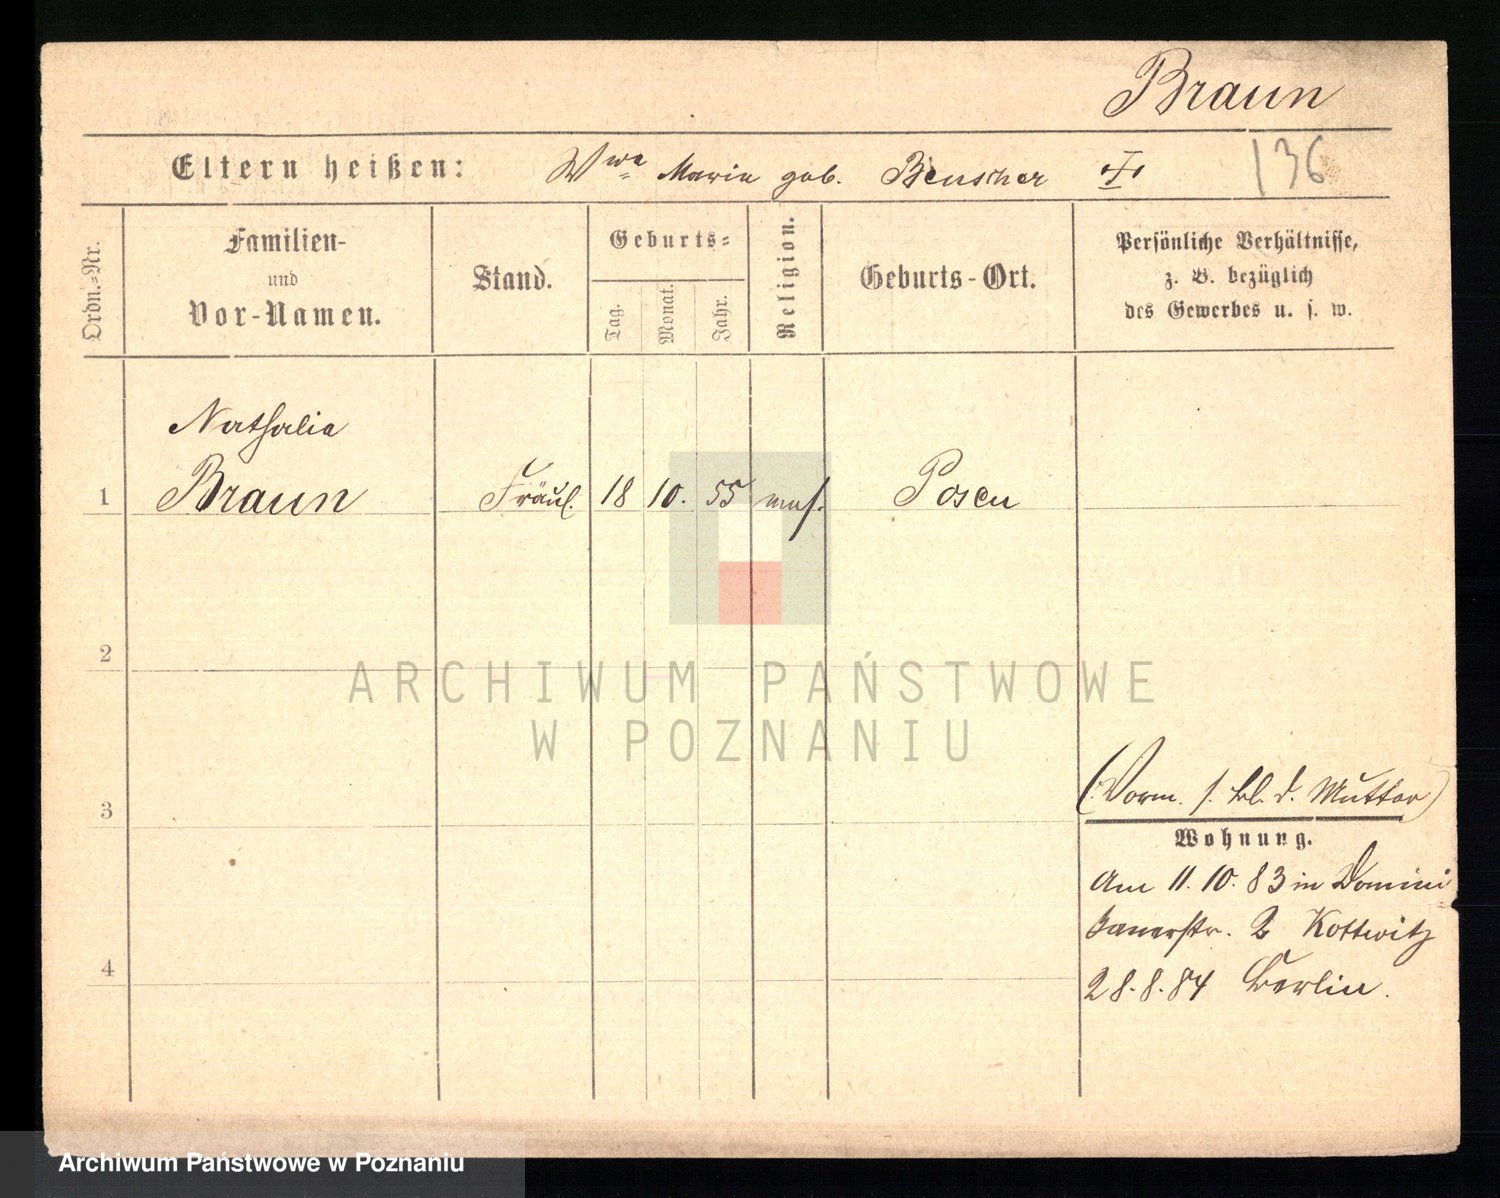 Braun
Eltern heißen: Wwe Maria geb. Beuscher †
136
Ordn.=Nr.
Familien-
und
Vor-Namen.
Stand.
Geburts=
Tag.
Monat.
Jahr.
Religion.
Geburts-Ort.
Persönliche Verhältnisse,
z. B. bezüglich
des Gewerbes u. s. w.
Nathalia
1 Braun Fräul. 18 10. 55 mos. Posen
2
ARCHIWUM PAŃSTWOWE
W POZNANIU
3
(Vorm. s. Bl. d. Mutter)
Wohnung.
Am 11. 10. 83 in Domini
kanerstr. 2 Kottwitz
4
28. 8. 84 Berlin.
Archiwum Państwowe w Poznaniu